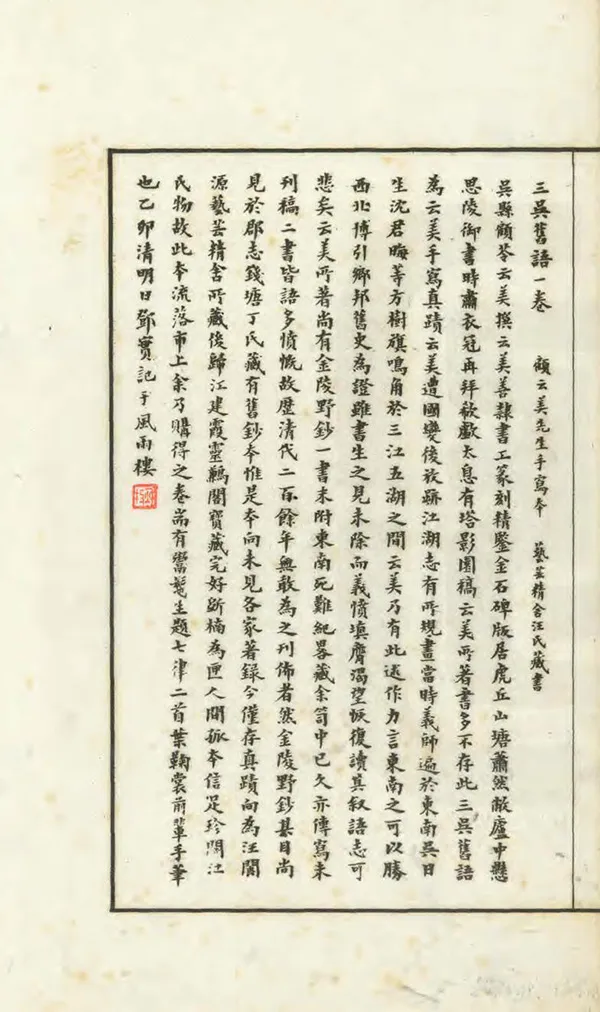 三吳舊語一卷 顧云美先生手寫本 藝芸精舍汪氏藏書
吳縣顧苓云美撰云美善隸書工篆刻精鑒金石碑版居虎丘山塘蕭然敝廬中懸
思陵御書時肅衣冠再拜欷歔太息有塔影園稿云美所著書多不存此三吳舊語
為云美手寫真蹟云美遭國變後放跡江湖志有所規畫當時義師遍於東南吳日
生沈君晦等方樹旗鳴角於三江五湖之間云美乃有此述作力言東南之可以勝
西北博引鄉邦舊史為證雖書生之見未除而義憤填膺渴望恢復讀其叙語志可
悲矣云美所著尚有金陵野鈔一書末附東南死難紀畧藏余笥中已久亦傳寫未
刊稿二書皆語多憤慨故歷清代二百餘年無敢為之刊佈者然金陵野鈔其目尚
見於郡志錢塘丁氏藏有舊鈔本惟是本向未見各家著錄今僅存真蹟向為汪閬
源藝芸精舍所藏後歸江建霞靈鶼閣寶藏完好斲楠為匣人間孤本信足珍閟江
氏物故此本流落市上余乃購得之卷耑有鬻髡生題七律二首葉鞠裳前輩手筆
也乙卯清明日鄧實記于風雨樓